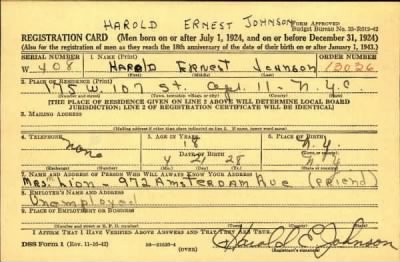 HAROLD ERNEST JOHNSON
FORM APPROVED
Budget Bureau No. 33-R012-42
REGISTRATION CARD (Men born on or after July 1, 1924, and on or before December 31, 1924)
(Also for the registration of men as they reach the 18th anniversary of the date of their birth on or after January 1, 1943.)
SERIAL NUMBER 1. NAME (Print) ORDER NUMBER
W 408 HAROLD ERNEST JOHNSON 13026
(First) (Middle) (Last)
2. PLACE OF RESIDENCE (Print)
175 W 107 St. Apt. 11 - N.Y.C.
(Number and street) (Town, township, village, or city) (County) (State)
[THE PLACE OF RESIDENCE GIVEN ON LINE 2 ABOVE WILL DETERMINE LOCAL BOARD
JURISDICTION; LINE 2 OF REGISTRATION CERTIFICATE WILL BE IDENTICAL]
3. MAILING ADDRESS
[Mailing address if other than place indicated on line 2. If same, insert word same]
4. TELEPHONE 5. AGE IN YEARS 6. PLACE OF BIRTH
none 18 N.Y.
DATE OF BIRTH
4 21 28 N.Y.
(Exchange) (Number) (Mo.) (Day) (Yr.) (State or country)
7. NAME AND ADDRESS OF PERSON WHO WILL ALWAYS KNOW YOUR ADDRESS
Mrs. Lion - 972 Amsterdam Ave (friend)
8. EMPLOYER'S NAME AND ADDRESS
Unemployed
9. PLACE OF EMPLOYMENT OR BUSINESS
(Number and street or R. F. D. number) (Town) (County) (State)
I AFFIRM THAT I HAVE VERIFIED ABOVE ANSWERS AND THAT THEY ARE TRUE.
DSS Form 1 (Rev. 11-16-42) (OVER) Harold E Johnson